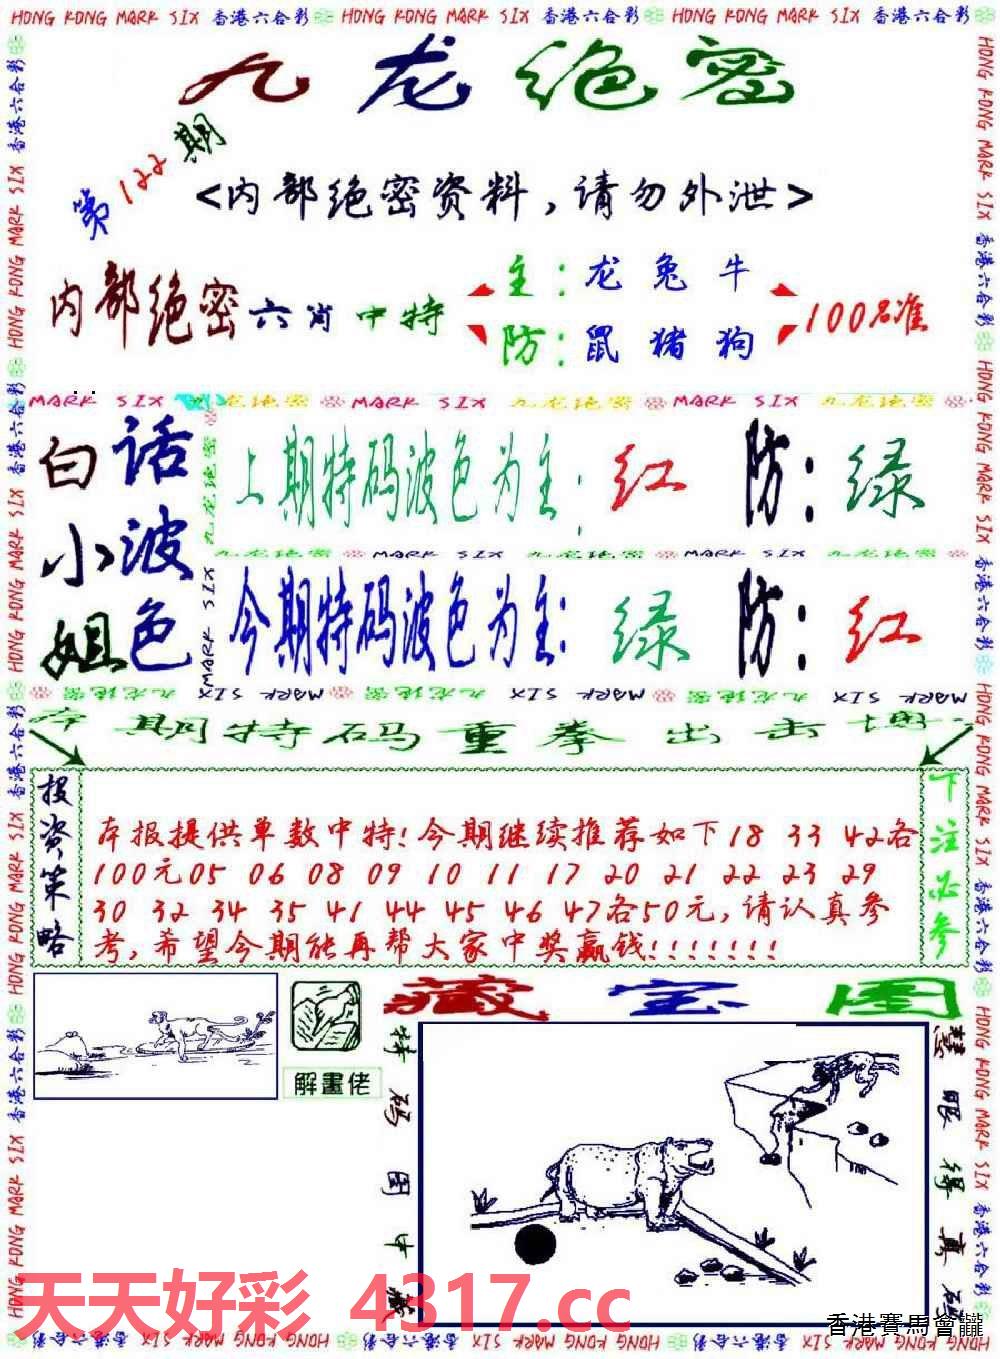 HONG KONG MARK SIX 香港六合彩 HONG KONG MARK SIX 香港六合彩 HONG KONG MARK SIX 香港六合彩
九龙绝密
第122期
<内部绝密资料,请勿外泄>
内部绝密六肖中特
主:龙兔牛
防:鼠猪狗
100%准
MARK SIX 九龙绝密 MARK SIX 九龙绝密 MARK SIX 九龙绝密
白小姐
话波色
上期特码波色为主:红 防:绿
九龙绝密 MARK SIX 九龙绝密 MARK SIX 九龙绝密
今期特码波色为主:绿 防:红
本期特码重拳出击
投资策略
本报提供单数中特!今期继续推荐如下18 33 42各
100元05 06 08 09 10 11 17 20 21 22 23 29
30 32 34 35 41 44 45 46 47各50元,请认真参
考,希望今期能再帮大家中奖赢钱!!!!!!!
下注必参
解畫佬
藏宝图
特码图中藏
慧眼得真码
天天好彩 4317.cc
香港賽馬會